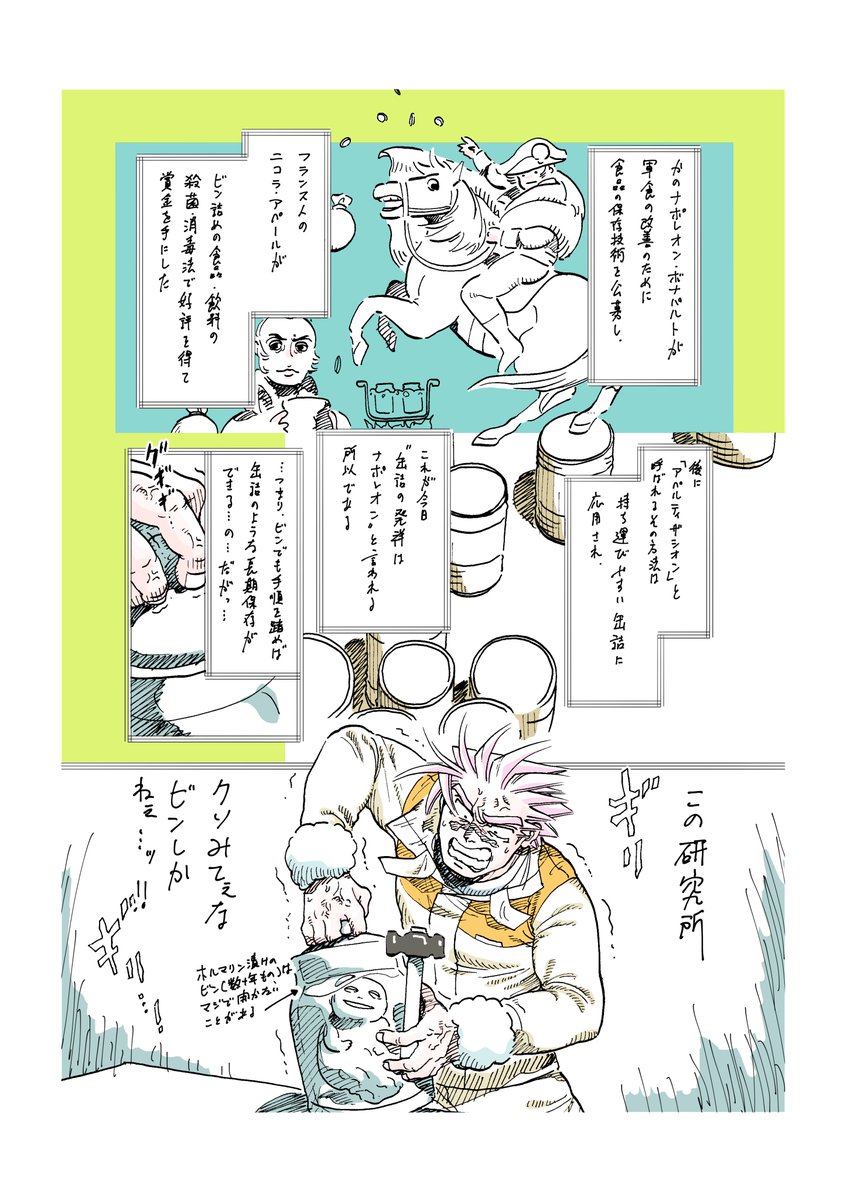 かのナポレオン・ボナパルトが
軍食の改善のために
食品の保存技術を公募し、
フランス人の
ニコラ・アペールが
ビン詰めの食品・飲料の
殺菌・消毒法で好評を得て
賞金を手にした
後に
「アペルティザシオン」と
呼ばれるその方法は
持ち運びやすい缶詰に
応用され、
これが今日
“缶詰の発祥は
ナポレオン”と言われる
所以である
…つまり、ビンでも手順を踏めば
缶詰のような長期保存が
できる…の…だがっ…
グギギ
この研究所
ギリ
クソみてぇな
ビンしか
ねぇ…ッ!!
ギリ…!…!
ホルマリン漬けの
ビン(数十年もの)は
マジで開かない
ことがある